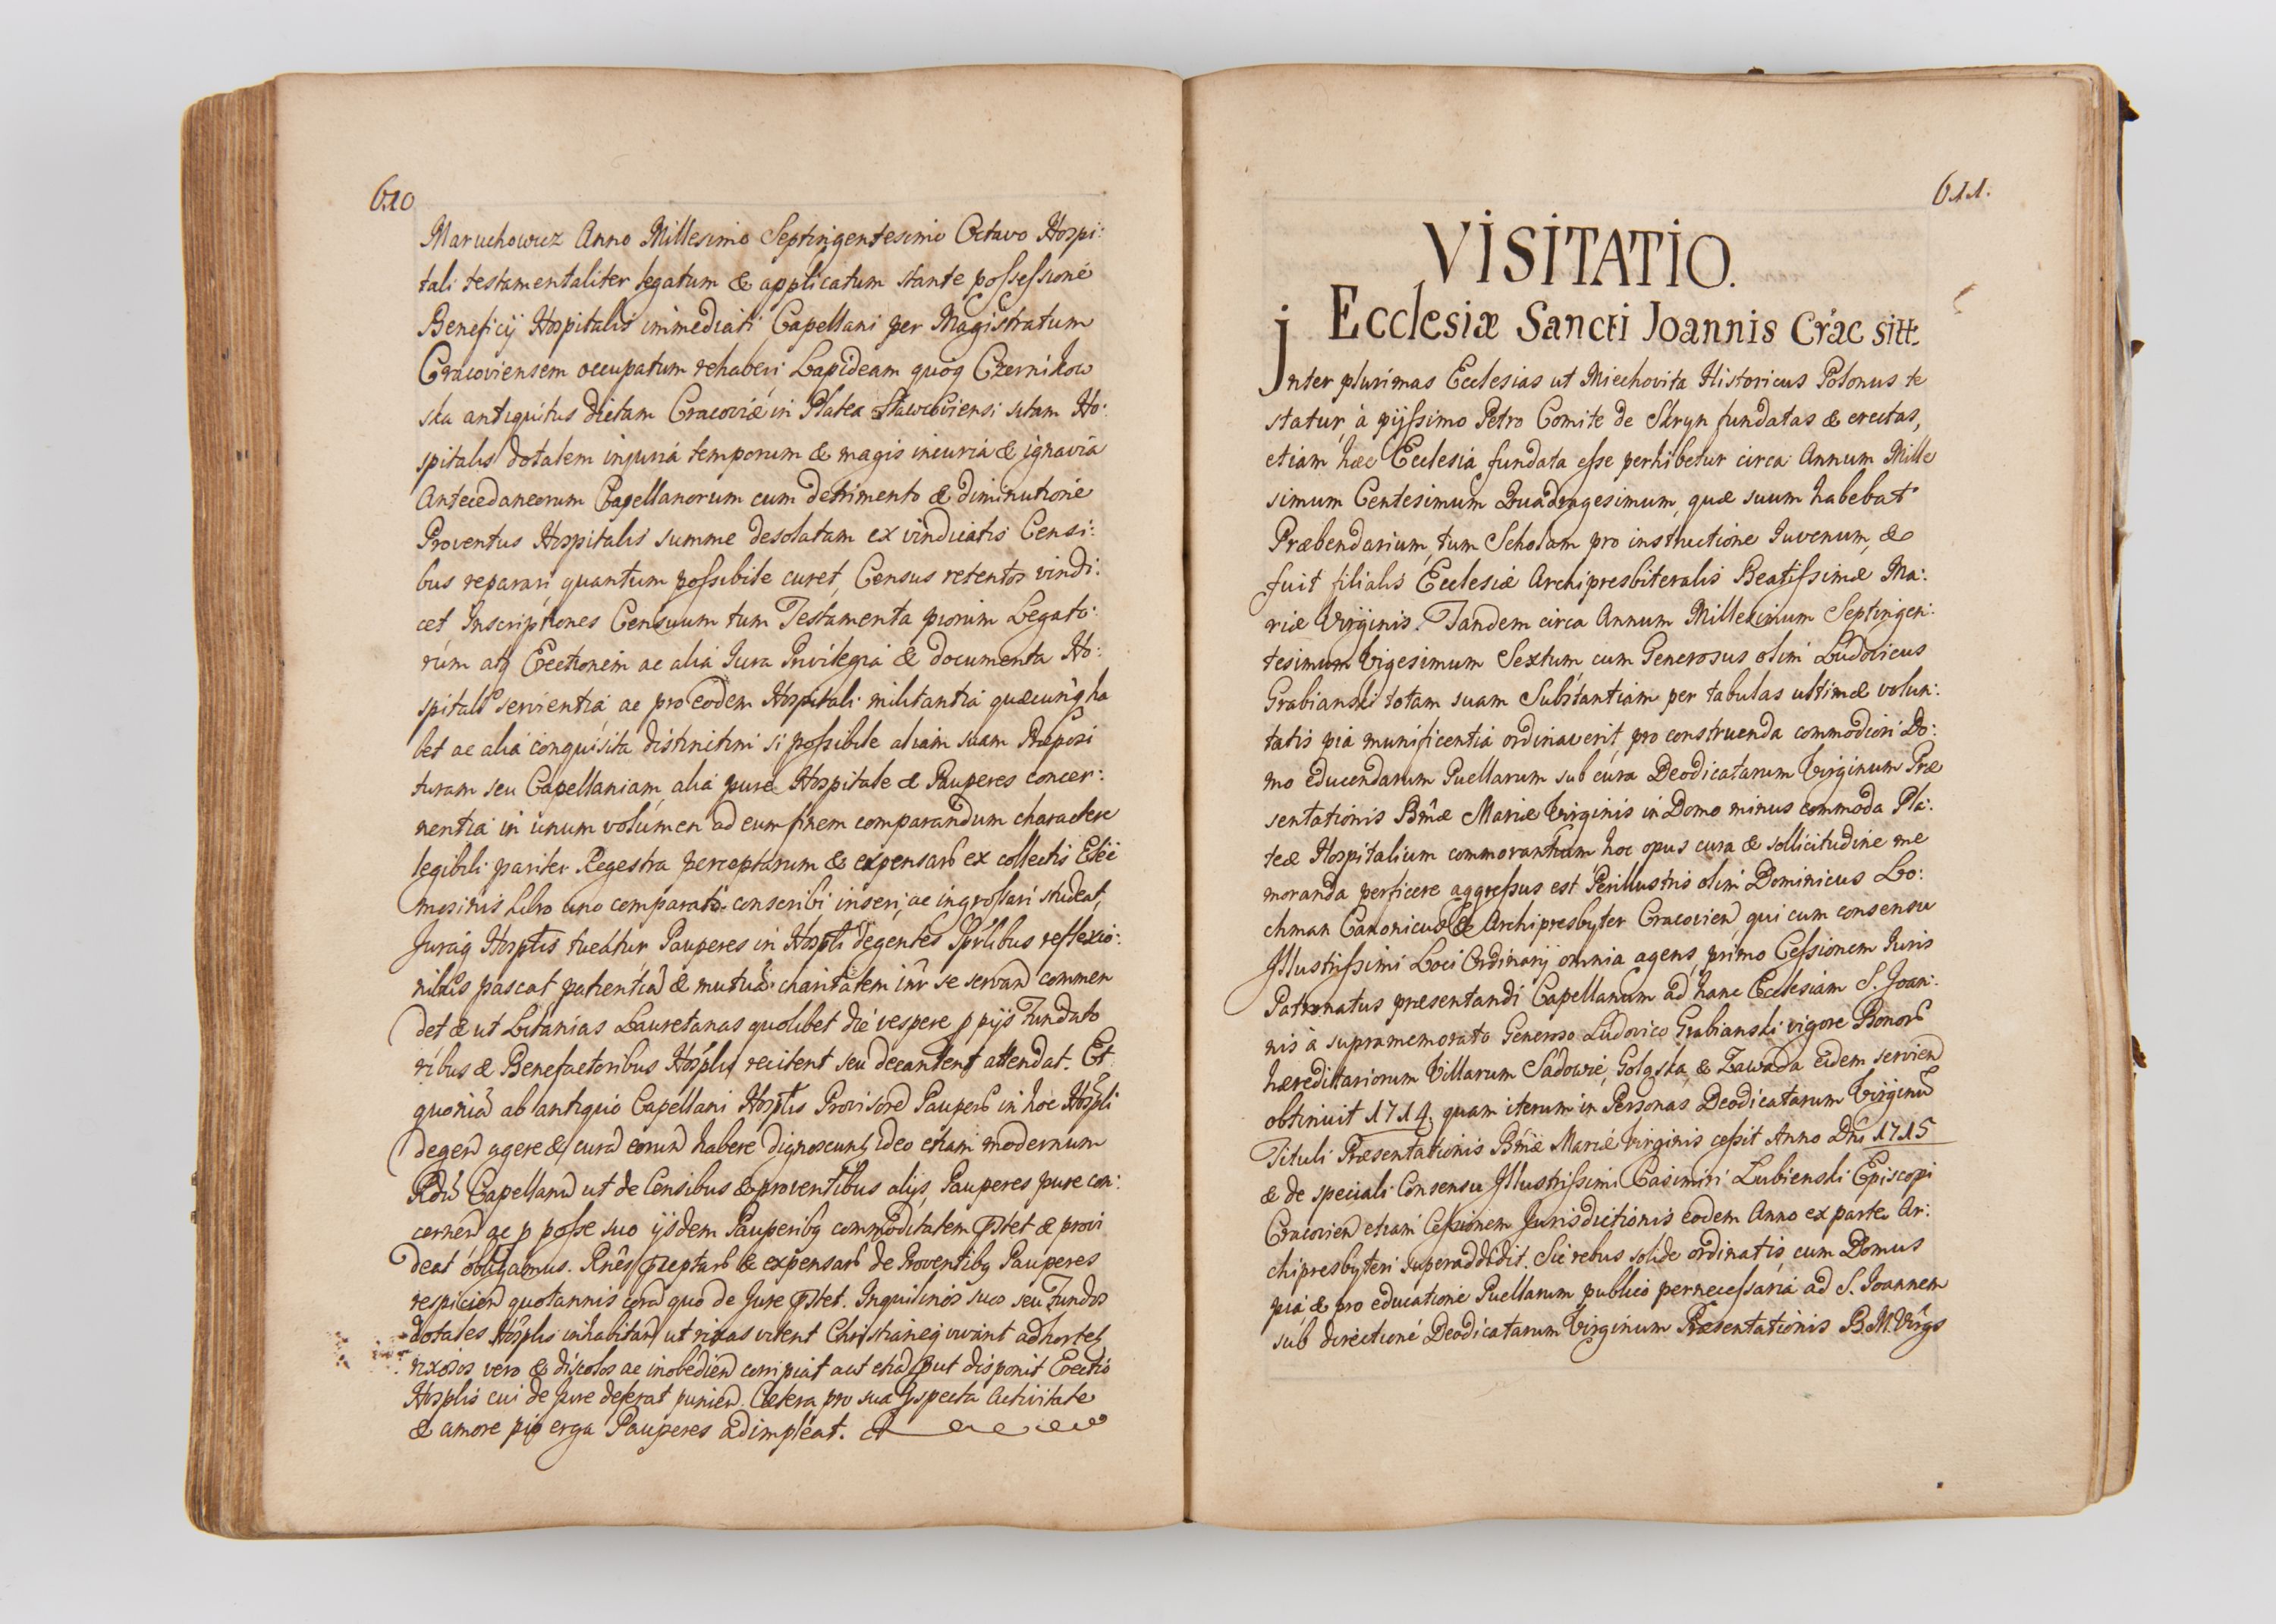 610
Maruchowicz Anno Millesimo Septingentesimo Octavo Hospi:
tali testamentaliter legatum & applicatum stante possessione
Beneficij Hospitalis immediati Capellani per Magistratum
Cracoviensem occupatum rehaberi, Lapideam quoq Czernikow
ska antiquitus dictam Cracoviæ in Platea Slawcoviensi sitam Ho:
spitalis dotalem injuriá temporum & magis incuriá & ignaviá
Antecedaneorum Capellanorum cum detrimento & diminutione
Proventus Hospitalis summe desolatam ex vindicatis Censi:
bus reparari, quantum possibile curet, Census retentos vindi:
cet, Inscriptiones Censuum tum Testamenta piorum Legato:
rum atq Erectionem ac alia Jura Privilegia & documenta Ho:
spitali servientia ac pro eodem Hospitali militantia quæcunq ha
bet ac alia conquisita distinctim si possibile aliam suam Præposi
turam seu Capellaniam, alia pure Hospitale & Pauperes concer:
nentia in unum volumen ad eum finem comparandum charactere
legibili pariter Regestra perceptarum & expensarū ex collectis Elee
mosinis Libro uno comparato conscribi inseri, ac ingrossari studeat,
Juraq Hosplis tueatur, Pauperes in Hospli degentes Sprlibus reflexio:
nibus pascat patientiā & mutuā charitatem inr se servand commen
det & ut Litanias Lauretanas quolibet die vespere p pijs Fundato
ribus & Benefactoribus Hosplis recitent seu decantent attendat. Et
quoniā ab antiquo Capellani Hosplis Provisorē Pauperū in hoc Hospli
degen agere & curā eorum habere dignoscunt, ideo etiam modernum
Rdū Capellanū ut de Censibus & proventibus alijs, Pauperes pure con:
cernen ac p posse suo ijsdem Pauperibq commoditatem pstet & provi
deat obligamus. Rnes pceptarū & expensarū de Proventibq Pauperes
respicien quotannis corā quo de Jure pstet. Inquilinos suos seu Fundos
dotales Hosplis inhabitan ut rixas vitent Christianeq vivant adhortet,
rixosos vero & discolos ac inobedien corripiat aut etiā put disponit Erectio
Hosplis cui de Jure deferat punien. Cætera pro sua pspecta Activitate
& amore pio erga Pauperes adimpleat.
611.
VISITATIO.
Ecclesiæ Sancti Joannis Crac sitt:
Inter plurimas Ecclesias ut Miechovita Historicus Polonus te
statur, à pijssimo Petro Comite de Skryn fundatas & erectas,
etiam hæc Ecclesia fundata esse perhibetur circa Annum Mille
simum Centesimum Quadragesimum, quæ suum habebat
Præbendarium, tum Scholam pro instructione Juvenum, &
fuit filialis Ecclesiæ Archipresbiteralis Beatissimæ Ma:
riæ Virginis. Tandem circa Annum Millesimum Septingen:
tesimum Vigesimum Sextum, cum Generosus olim Ludovicus
Grabianski totam suam Substantiam per tabulas ultimæ volun:
tatis pia munificentia ordinaverit, pro construenda commodiori Do:
mo educendarum Puellarum sub cura Deodicatarum Virginum Præ
sentationis Bmæ Mariæ Virginis in Domo minus commoda Pla:
teæ Hospitalium commorantium hoc opus cura & sollicitudine me
moranda perficere aggressus est Perillustris olim Dominicus Lo:
chman Canonicus & Archipresbyter Cracovien qui cum consensu
Illustrissimi Loci Ordinarij omnia agens, primo Cessionem Juris
Patronatus præsentandi Capellanum ad hanc Ecclesiam S. Joan:
nis à supramemorato Generoso Ludovico Grabianski vigore Bonorū
hæreditariorum Villarum Sadowie, Golgska, & Zawada eidem servien
obtinuit 1714. quam iterum in Personas Deodicatarum Virginū
Tituli Præsentationis Bmæ Mariæ Virginis cessit Anno Dni 1715
& de speciali Consensu Illustrissimi Casimiri Lubienski Episcopi
Cracovien etiam Cessionem Jurisdictionis eodem Anno ex parte Ar:
chipresbyteri superaddidit. Sic rebus solide ordinatis, cum Domus
pia, & pro educatione Puellarum publico pernecessaria ad S. Joannem
sub directione Deodicatarum Virginum Præsentationis B.M. Virgs